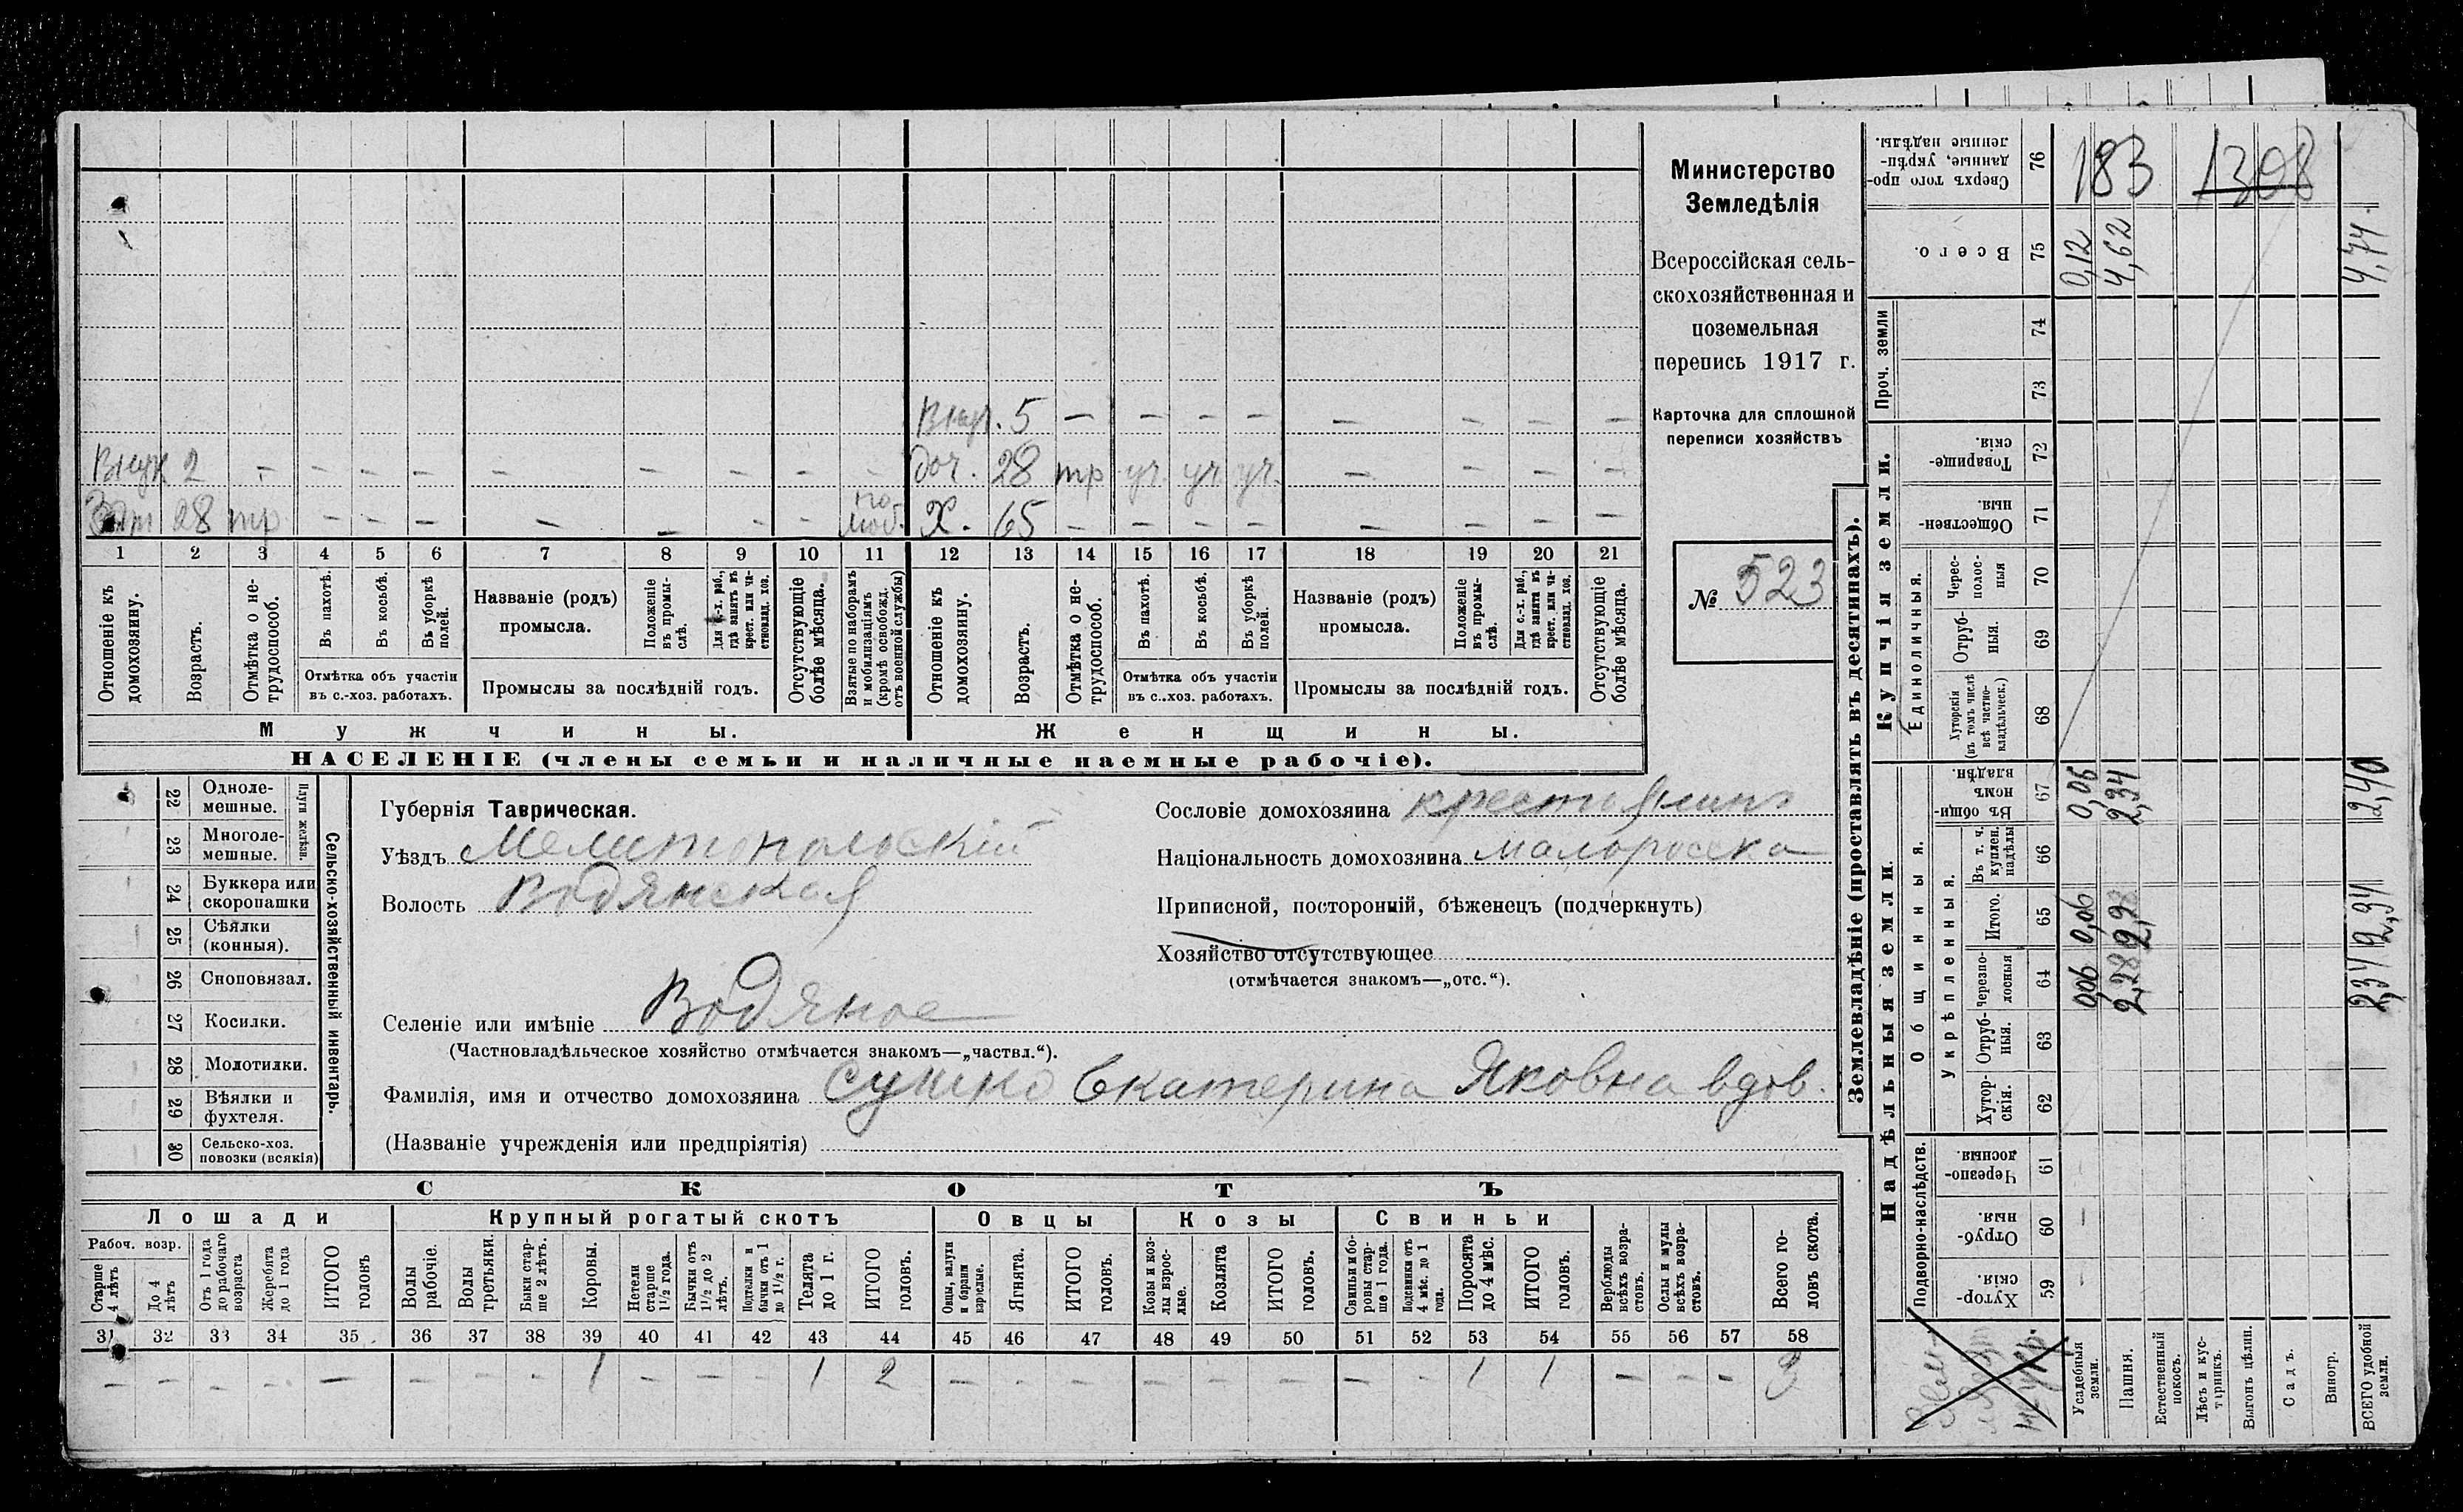 Министерство
Земледѣлія
Всероссійская сель-
скохозяйственная и
поземельная
перепись 1917 г.
Карточка для сплошной
переписи хозяйствъ
№ 523
Внуч. 5 — — — — — — — —
Внук 2 - - - - - - - - - Доч. 28 тр уч. уч. уч. — — — —
Зят 28 тр. - - - - - - - по моб. Х. 65 — — — — — — — —
1 2 3 4 5 6 7 8 9 10 11 12 13 14 15 16 17 18 19 20 21
Отношеніе къ домохозяину.
Возрастъ.
Отмѣтка о не-трудоспособ.
Въ пахотѣ.
Въ косьбѣ.
Въ уборкѣ полей.
Отмѣтка объ участіи въ с.-хоз. работахъ.
Названіе (родъ) промысла.
Положеніе въ промы-слѣ.
Для с.-х. раб., гдѣ занятъ въ крест. или ча-стновлад. хоз.
Промыслы за послѣдній годъ.
Отсутствующіе болѣе мѣсяца.
Взятые по наборамъ и мобилизаціямъ (кромѣ освобожд. отъ военной службы)
Отношеніе къ домохозяину.
Возрастъ.
Отмѣтка о не-трудоспособ.
Въ пахотѣ.
Въ косьбѣ.
Въ уборкѣ полей.
Отмѣтка объ участіи въ с.-хоз. работахъ.
Названіе (родъ) промысла.
Положеніе въ промы-слѣ.
Для с.-х. раб., гдѣ занята въ крест. или ча-стновлад. хоз.
Промыслы за послѣдній годъ.
Отсутствующіе болѣе мѣсяца.
Мужчины. Женщины.
НАСЕЛЕНІЕ (члены семьи и наличные наемные рабочіе).
22 Одноле-мешные.
23 Многоле-мешные.
Плуги желѣзн.
24 Буккера или скоропашки
25 Сѣялки (конныя).
26 Сноповязал.
27 Косилки.
28 Молотилки.
29 Вѣялки и фухтеля.
30 Сельско-хоз. повозки (всякія)
Сельско-хозяйственный инвентарь.
Губернія Таврическая.
Уѣздъ Мелитопольскій
Волость Водянская
Селеніе или имѣніе Водяное
(Частновладѣльческое хозяйство отмѣчается знакомъ—„частвл.“).
Фамилія, имя и отчество домохозяина Сушко Екатерина Яковна вдов.
(Названіе учрежденія или предпріятія)
Сословіе домохозяина крестьянинъ
Національность домохозяина малоросска
Приписной, посторонній, бѣженецъ (подчеркнуть)
Хозяйство отсутствующее
(отмѣчается знакомъ—„отс.“).
СКОТЪ
Лошади Крупный рогатый скотъ Овцы Козы Свиньи
Рабоч. возр.
Старше 4 лѣтъ
До 4 лѣтъ
Отъ 1 года до рабочаго возраста
Жеребята до 1 года
ИТОГО головъ
Волы рабочіе.
Волы третьяки.
Быки стар-ше 2 лѣтъ.
Коровы.
Нетели старше 1½ года.
Бычки отъ 1½ до 2 лѣтъ.
Подтелки и бычки отъ 1 до 1½ г.
Телята до 1 г.
ИТОГО головъ.
Овцы, валухи и бараны взрослые.
Ягнята.
ИТОГО головъ.
Козы и коз-лы взрос-лые.
Козлята
ИТОГО головъ.
Свиньи и бо-ровы стар-ше 1 года.
Подсвинки отъ 4 мѣс. до 1 года.
Поросята до 4 мѣс.
ИТОГО головъ.
Верблюды всѣхъ возра-стовъ.
Ослы и мулы всѣхъ возра-стовъ.
Всего го-ловъ скота.
31 32 33 34 35 36 37 38 39 40 41 42 43 44 45 46 47 48 49 50 51 52 53 54 55 56 57 58
— — — — — — — — 1 — — — 1 2 — — — — — — — — 1 1 — — — 3
Землевладѣніе (проставлять въ десятинахъ).
Купчія земли.
Надѣльныя земли.
Сверхъ того про-данные, укрѣп-ленные надѣлы. 76 183 1398
Всего. 75 0,12 4,62 4,74.
Проч. земли 74 73
Товарище-скія. 72
Обществен-ныя. 71
Единоличныя.
Черес-полос-ныя 70
Отруб-ныя. 69
Хуторскія (въ томъ числѣ всѣ частно-владѣльческ.) 68
Общинныя.
Въ общи-номъ владѣн. 67 0,06 2,34 2,40
Укрѣпленныя.
Въ т. ч. куплен. надѣлы 66
Итого. 65 0,06
Черезпо-лосныя 64 0,06 2,28
Отруб-ныя. 63
Хутор-скія. 62
Подворно-наслѣдств.
Черезпо-лосныя. 61
Отруб-ныя. 60
Хутор-скія. 59
Усадебныя земли.
Пашня.
Естественный покосъ.
Лѣсъ и кус-тарникъ.
Выгонъ цѣлин.
Садъ.
Виногр.
ВСЕГО удобной земли.